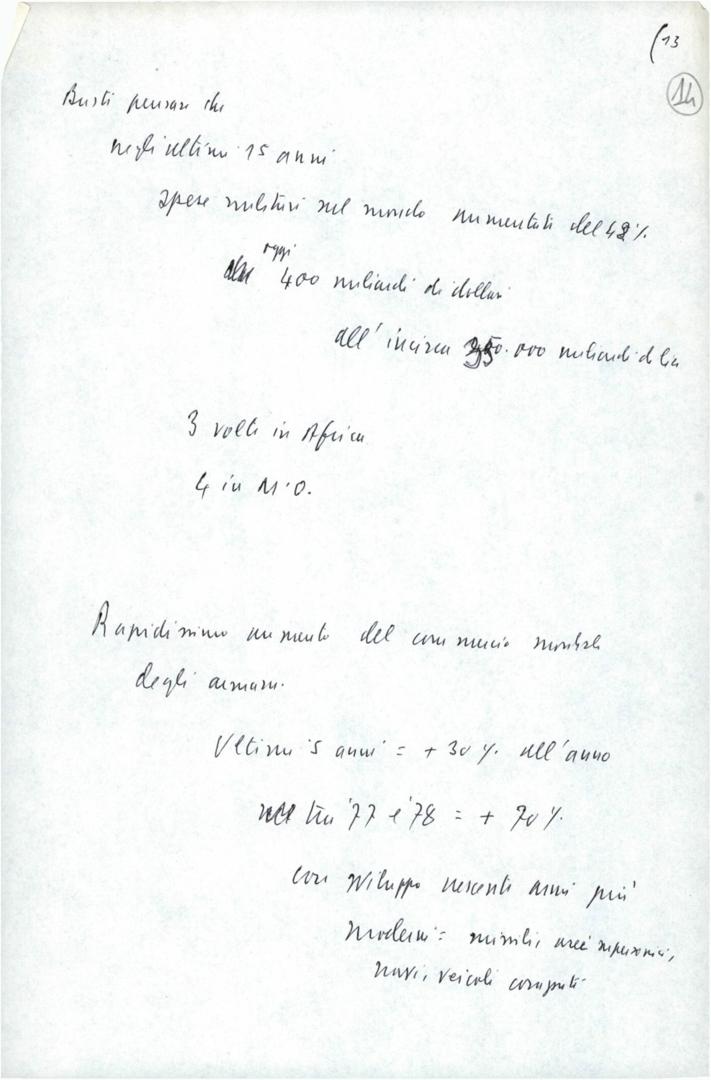 (13
14
Basti pensare che
negli ultimi 15 anni
spese militari nel mondo aumentate del 42%
oggi
400 miliardi di dollari
all'incirca .000 miliardi di lire
3 volte in Africa
4 in M.O.
Rapidissimo aumento del commercio mondiale
degli armam.
Ultimi 5 anni = + 30% all'anno
tra '77 e '78 = + 70%.
con sviluppo crescente armi più
moderni = missili, aerei supersonici,
navi, veicoli corazzati